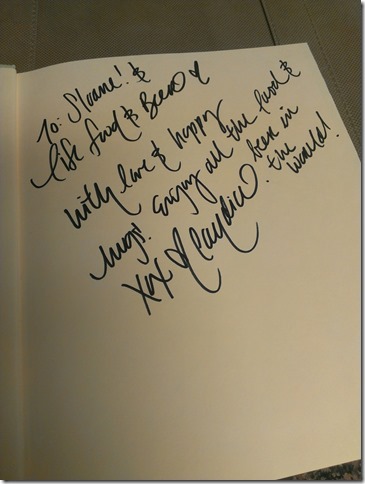 To: Sloane! &
Life Food & Beer ♥
with love & happy
hugs! Enjoy all the food &
beer in
the
world!
XOX ♥ Candice